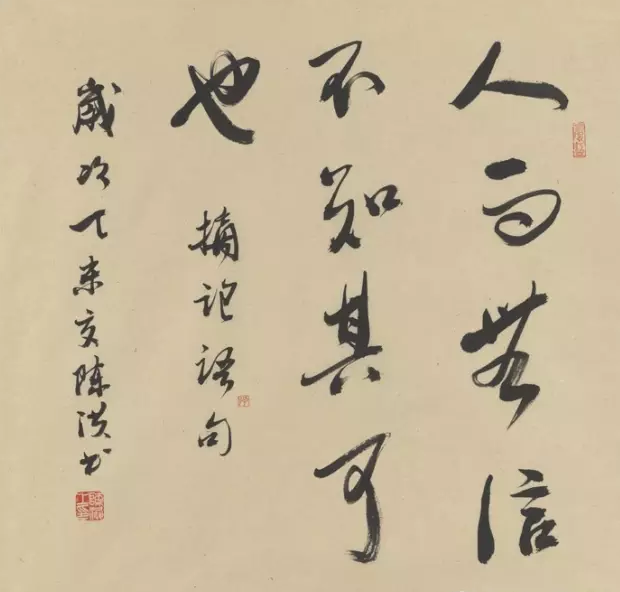 人而無信
不知其可
也
摘论语句
歲次未夏陈洪书